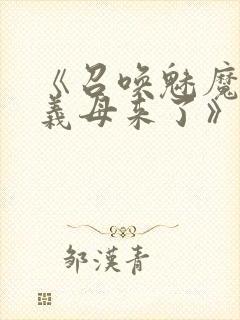 《召唤魅魔
義母来了》
邹漢青